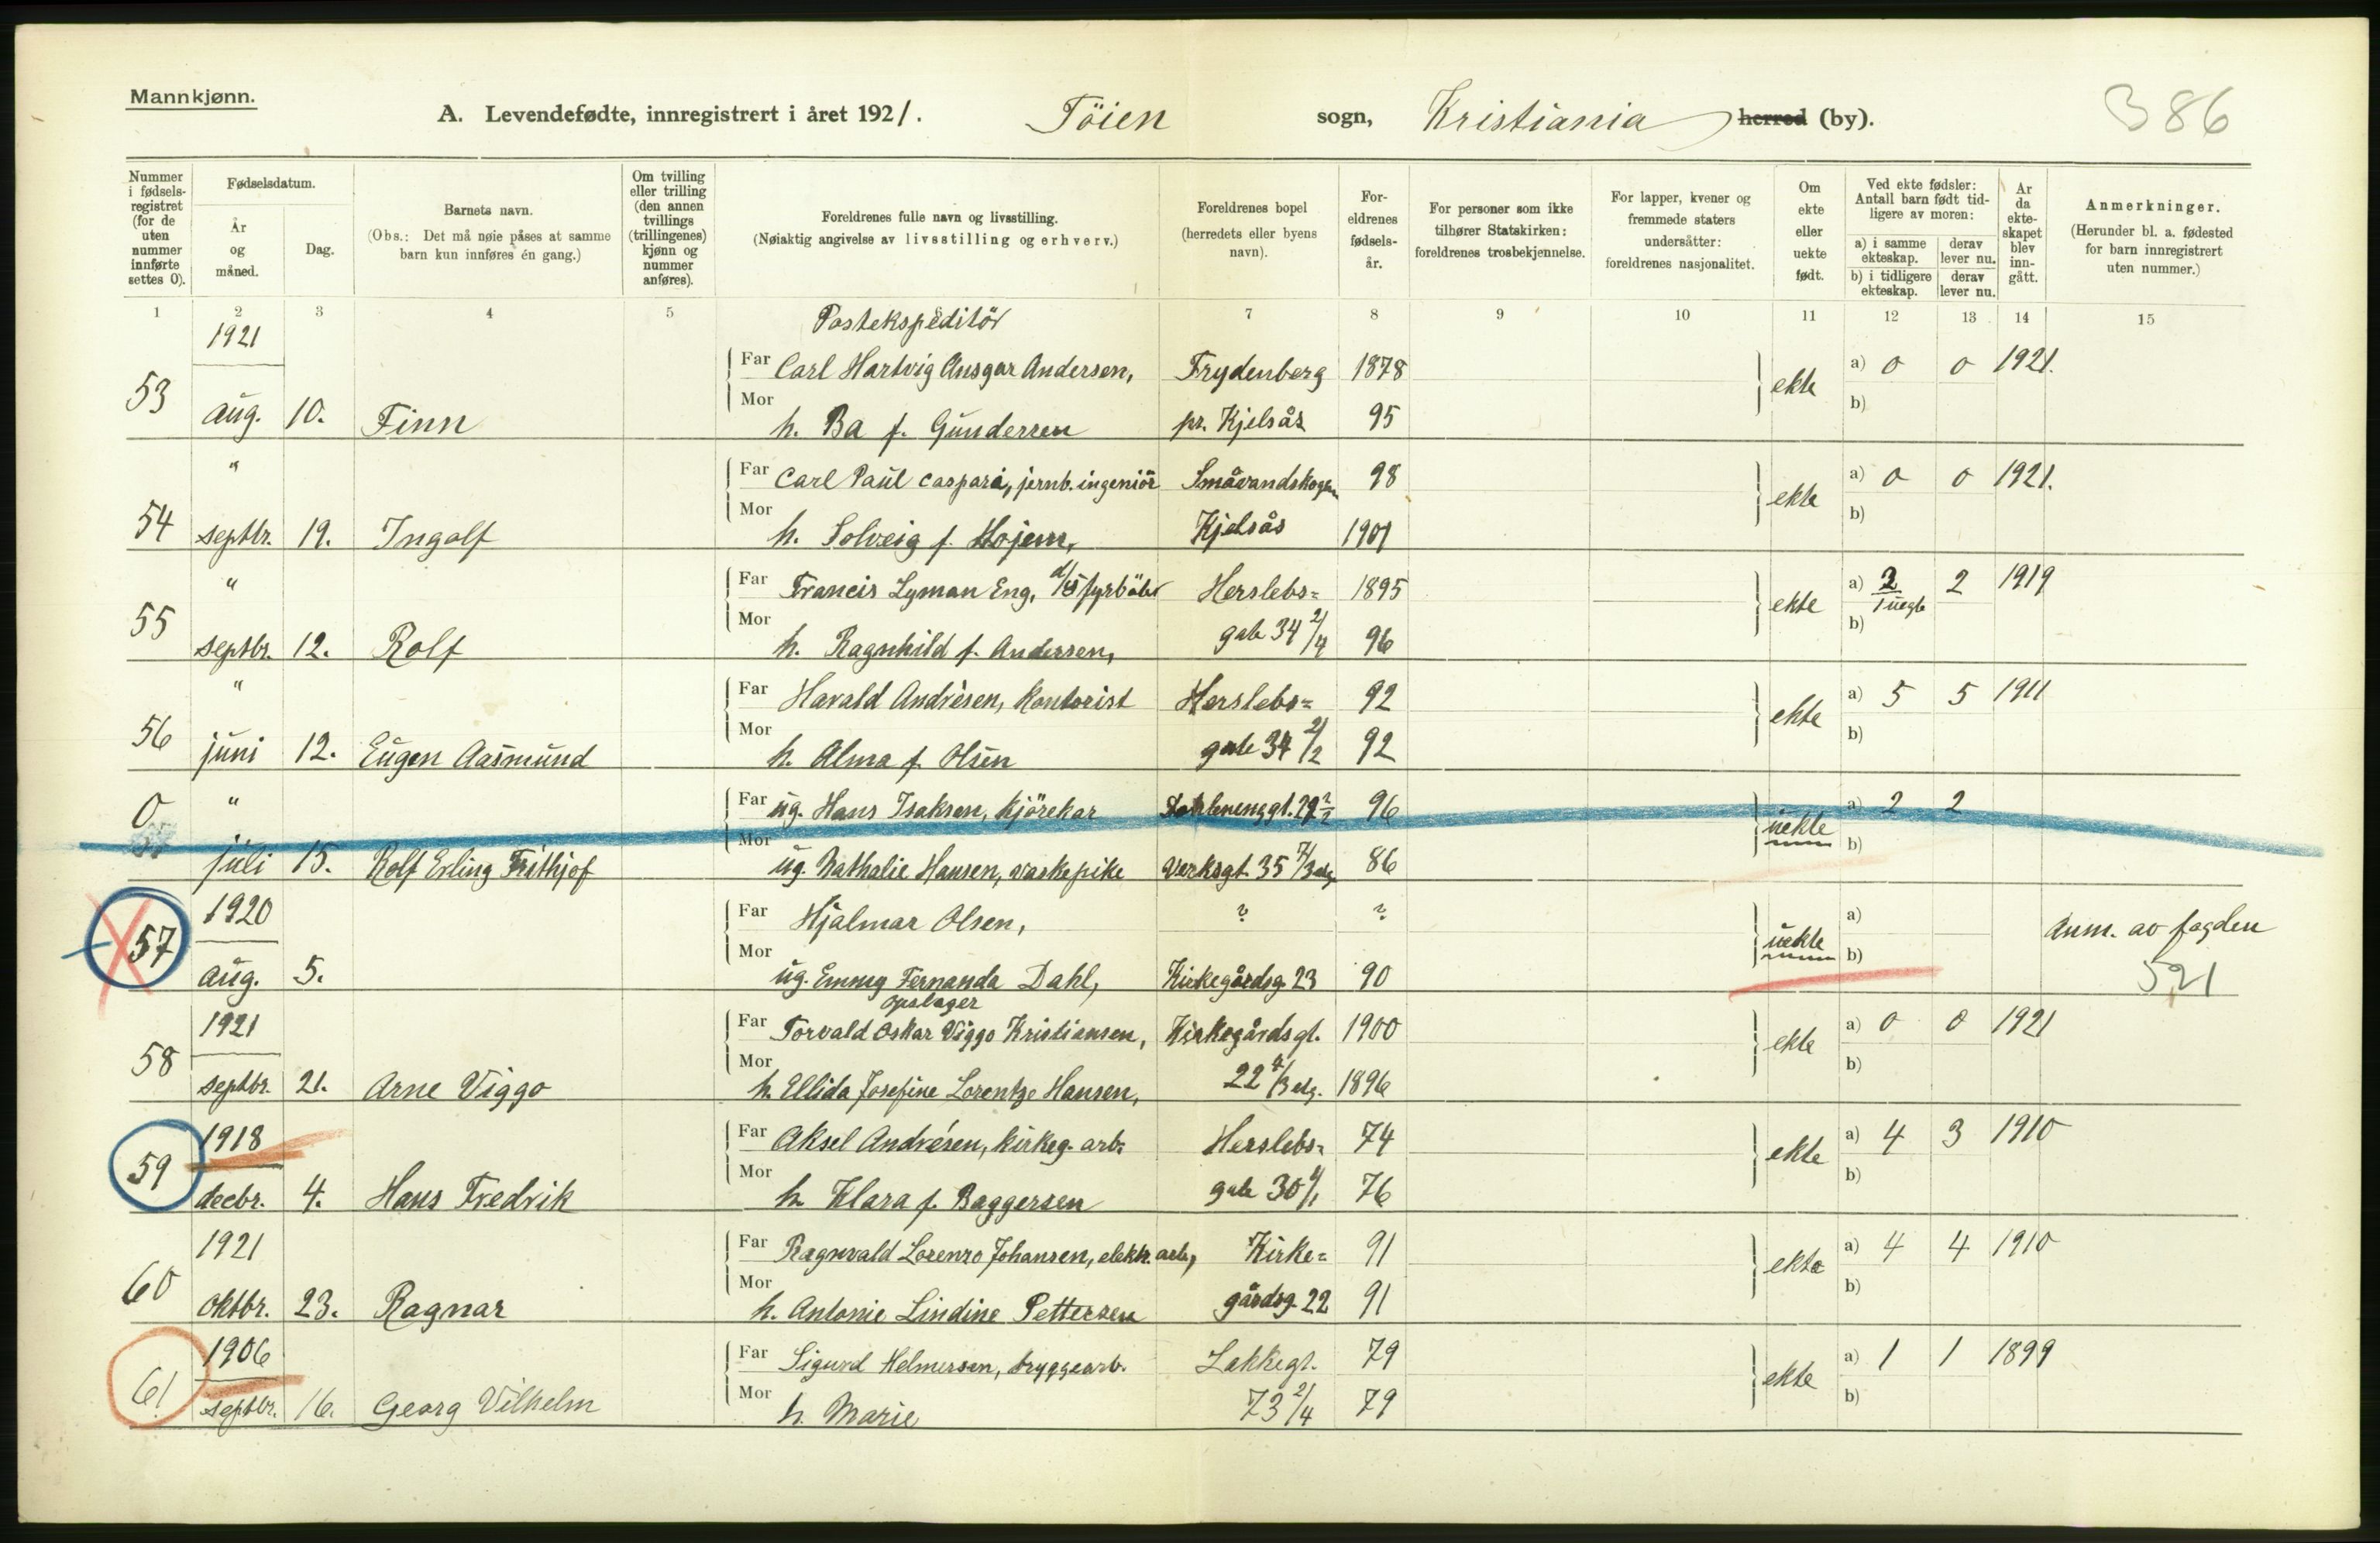 Mannkjønn.
A. Levendefødte, innregistrert i året 1921. Töien sogn, Kristiania herred (by). 386
Nummer i fødsels-registret (for de uten nummer innførte settes 0).
Fødselsdatum.
År og måned.
Dag.
Barnets navn.
(Obs.: Det må nøie påses at samme barn kun innføres én gang.)
Om tvilling eller trilling (den annen tvillings (trillingenes) kjønn og nummer anføres).
Foreldrenes fulle navn og livsstilling.
(Nøiaktig angivelse av livsstilling og erhverv.)
Foreldrenes bopel (herredets eller byens navn).
For-eldrenes fødsels-år.
For personer som ikke tilhører Statskirken: foreldrenes trosbekjennelse.
For lapper, kvener og fremmede staters undersåtter: foreldrenes nasjonalitet.
Om ekte eller uekte født.
Ved ekte fødsler: Antall barn født tid-ligere av moren:
a) i samme ekteskap.
derav lever nu.
b) i tidligere ekteskap.
derav lever nu.
År da ekte-skapet blev inn-gått.
Anmerkninger.
(Herunder bl. a. fødested for barn innregistrert uten nummer.)
1 2 3 4 5 7 8 9 10 11 12 13 14 15
1921 Postekspeditör
Far Carl Hartvig Ansgar Andersen, Frydenberg 1878 a) 0 0 1921.
53 aug. 10. Finn Mor h. Ba f. Gundersen pr. Kjelsås 95 ekte b)
" Far Carl Paul Caspari, jernb. ingeniör Småvandskogen 98 a) 0 0 1921.
54 septbr. 19. Ingolf Mor h. Solveig f. Hojem, Kjelsås 1901 ekte b)
" Far Francis Lyman Eng, d/s fyrböter Herslebs= 1895 a) 2 2 1919
1 uegte
55 septbr. 12. Rolf Mor h. Ragnhild f. Andersen, gate 34 2/4 96 ekte b)
" Far Harald Andrèsen, kontorist Herslebs= 92 a) 5 5 1911
56 juni 12. Eugen Aasmund Mor h. Alma f. Olsen gate 34 2/2 92 ekte b)
0 " Far ug. Hans Isaksen, kjörekar 96 a) 2 2
juli 15. Rolf Erling Frithjof Mor ug. Nathalie Hansen, vaskepike Verksgt. 35 86 uekte b)
1920 Far Hjalmar Olsen, ? ? a) Anm. av fogden
57 aug. 5. Mor ug. Emmy Fernanda Dahl, Kirkegårdsg. 23 90 uekte b) 521
opslager
1921 Far Torvald Oskar Viggo Kristiansen, Kirkegårdsgt. 1900 a) 0 0 1921
58 septbr. 21. Arne Viggo Mor h. Ellida Josefine Lorentze Hansen, 22 1896 ekte b)
1918 Far Aksel Andrésen, kirkeg. arb. Herslebs= 74 a) 4 3 1910
59 decbr. 4. Hans Fredrik Mor h. Klara f. Baggersen gate 30 76 ekte b)
1921 Far Ragnvald Lorenzo Johansen, elektr. arb., Kirke= 91 a) 4 4 1910
60 oktbr. 23. Ragnar Mor h. Antonie Lindine Pettersen gårdsg. 22 91 ekte b)
1906 Far Sigurd Helmersen, bryggearb. Lakkegt. 79 a) 1 1 1899
61 septbr. 16. Georg Vilhelm Mor h. Marie 73 2/4 79 ekte b)